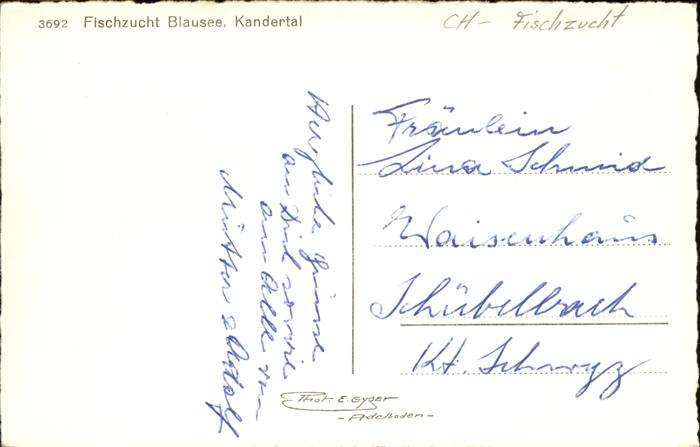 3692 Fischzucht Blausee, Kandertal
CH- Fischzucht
Herzliche Grüsse
an Dich sowie
an Alle von
Mutter & Adolf
Fräulein
Lina Schmid
Waisenhaus
Schübelbach
Kt. Schwyz
Phot. E. Gyger
- Adelboden -